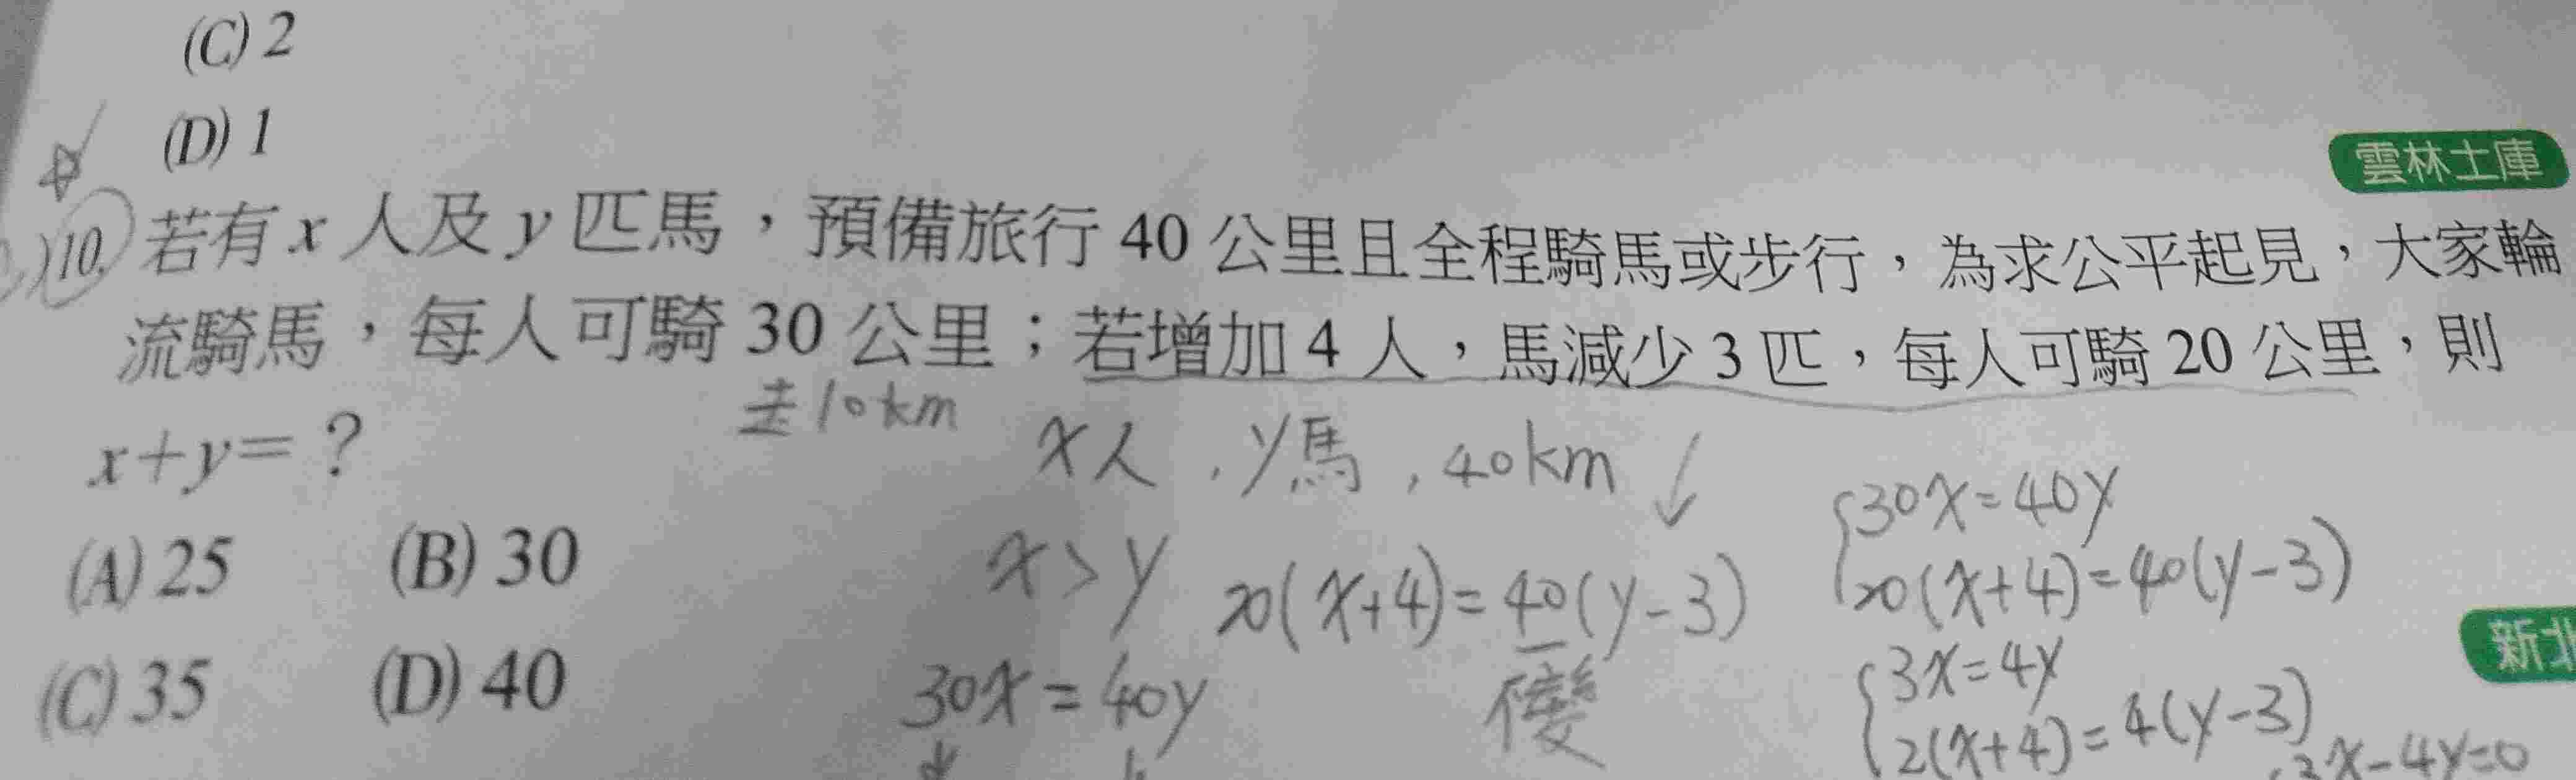 (C) 2
(D) 1
雲林土庫
)10. 若有 x 人及 y 匹馬，預備旅行 40 公里且全程騎馬或步行，為求公平起見，大家輪
流騎馬，每人可騎 30 公里；若增加 4 人，馬減少 3 匹，每人可騎 20 公里，則
走10km
x+y=？
x人，y馬，40km
(A) 25 (B) 30
x>y
20(x+4)=40(y-3)
30x=40y
20(x+4)=40(y-3)
新北
(C) 35 (D) 40
30x=40y
不變
3x=4y
2(x+4)=4(y-3)
3x-4y=0